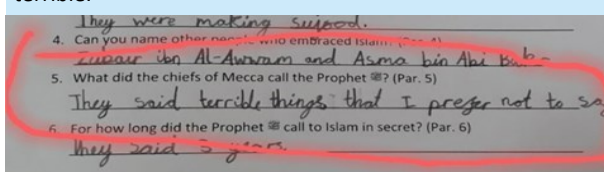 They were making sujood.
4. Can you name other people who embraced Islam? (Par. 4)
Zubair ibn Al-Awwam and Asma bin Abi Bakr
5. What did the chiefs of Mecca call the Prophet ﷺ? (Par. 5)
They said terrible things that I prefer not to say
6. For how long did the Prophet ﷺ call to Islam in secret? (Par. 6)
They said 3 years